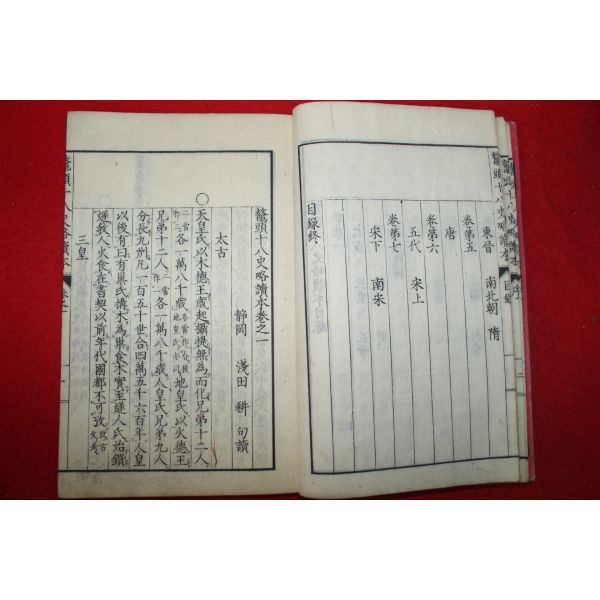 鼇頭十八史略讀本 目錄
東晉 南北朝 隋
卷第五
唐
卷第六
五代 宋上
卷第七
宋下 南宋
目錄終
鼇頭十八史略讀本卷之一
靜岡 淺田 耕 句讀
太古
○天皇氏以木德王歲起攝提無為而化兄弟十二人
各一萬八千歲地皇氏以火德王
兄弟十二人各一萬八千歲人皇氏兄弟九人
分長九州凡一百五十世合四萬五千六百年人皇
以後有曰有巢氏構木為巢食木實至燧人氏始鑽
燧教人火食在書契以前年代國都不可攷
三皇
鼇頭十八史略讀本 卷之一